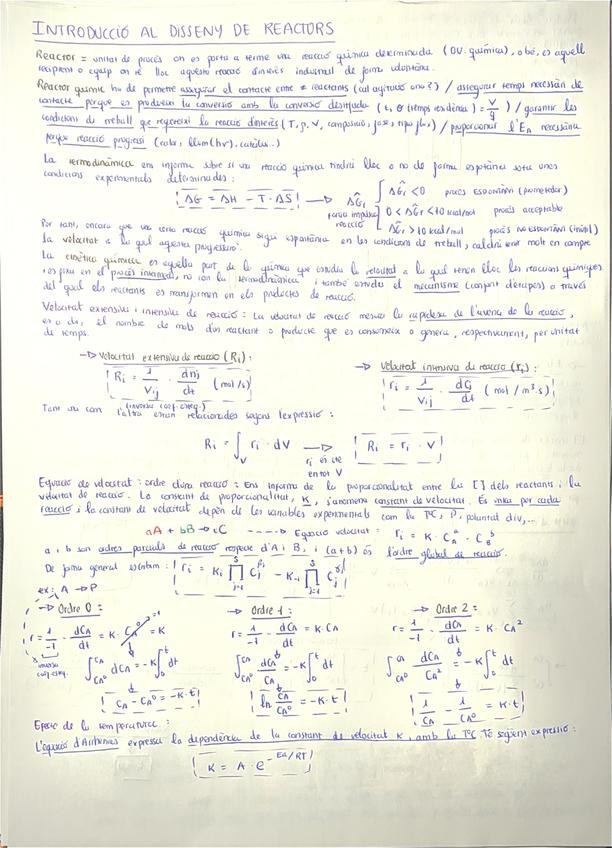 INTRODUCCIÓ AL DISSENY DE REACTORS
Reactor = unitat de procés on es porta a terme una reacció química determinada (OU. química), o bé, és aquell
recipient o equip on té lloc aquesta reacció d'interès industrial de forma voluntària.
Reactor químic ha de permetre assegurar el contacte entre ≠ reactants (cal agitació o no?) / assegurar temps necessàri de
contacte perque es produeixi la conversió amb la conversió desitjada (t, θ (temps residència) = V/q) / garantir les
condicions de treball que regeixi la reacció d'interès (T, p, V, composició, fase, tipo flux) / proporcionar l'EA necessària
perque reacció progressi (calor, llum (hv), catàlisi...)
La termodinàmica ens informa sobre si una reacció química tindrà lloc o no de forma espontània sota unes
condicions experimentals determinades:
ΔG = ΔH - T · ΔS → ΔG̃r
ΔG̃r < 0 procés espontàni (prometedor)
0 < ΔG̃r < 10 kcal/mol procés acceptable
ΔG̃r > 10 kcal/mol procés no espontàni (inviable)
Per tant, encara que una certa reacció química sigui espontània en les condicions de treball, caldrà tenir molt en compte
la velocitat a la qual aquesta progressarà.
La cinètica química és aquella part de la química que estudia la velocitat a la qual tenen lloc les reaccions químiques
i es fixa en el procés intermedi, no com la termodinàmica i també estudia el mecanisme (conjunt d'etapes) a través
del qual els reactants es transformen en els productes de reacció.
Velocitat extensiva i intensiva de reacció: La velocitat de reacció mesura la rapidesa de l'avenç de la reacció,
es a dir, el nombre de mols d'un reactant o producte que es consumeix o genera, respectivament, per unitat
de temps.
→ Velocitat extensiva de reacció (Ri):
Ri = 1/Vij · dnj/dt (mol/s)
(invers coef. esteq.)
→ Velocitat intensiva de reacció (ri):
ri = 1/Vij · dCj/dt (mol/m³·s)
Tant una com l'altra estan relacionades segons l'expressió:
Ri = ∫V ri · dV → Ri = ri · V
ri és cte
en tot V
Equació de velocitat i ordre d'una reacció: Ens informa de la proporcionalitat entre la [ ] dels reactants i la
velocitat de reacció. La constant de proporcionalitat, K, s'anomena constant de velocitat. És única per cada
reacció i la constant de velocitat depèn de les variables experimentals com la TºC, P, potencial div,...
aA + bB → cC ----→ Equació velocitat: ri = K · CA^a · CB^b
a i b són ordres parcials de reacció respecte d'A i B, i (a+b) és l'ordre global de reacció.
De forma general escribim: ri = Ki ∏ Cj^βj - K-i ∏ Cj^γj
ex: A → P
→ Ordre 0:
r = 1/-1 · dCA/dt = K · CA^0 = K
invers
coef. esteq.
∫CA0^CA dCA = -K ∫0^t dt
CA - CA0 = -K · t
→ Ordre 1:
r = 1/-1 · dCA/dt = K · CA
∫CA0^CA dCA/CA = -K ∫0^t dt
ln CA/CA0 = -K · t
→ Ordre 2:
r = 1/-1 · dCA/dt = K · CA²
∫CA0^CA dCA/CA² = -K ∫0^t dt
1/CA - 1/CA0 = K · t
Efecte de la temperatura:
L'equació d'Arrhenius expressa la dependència de la constant de velocitat K, amb la TºC. Té següent expressió:
K = A · e^-Ea/RT